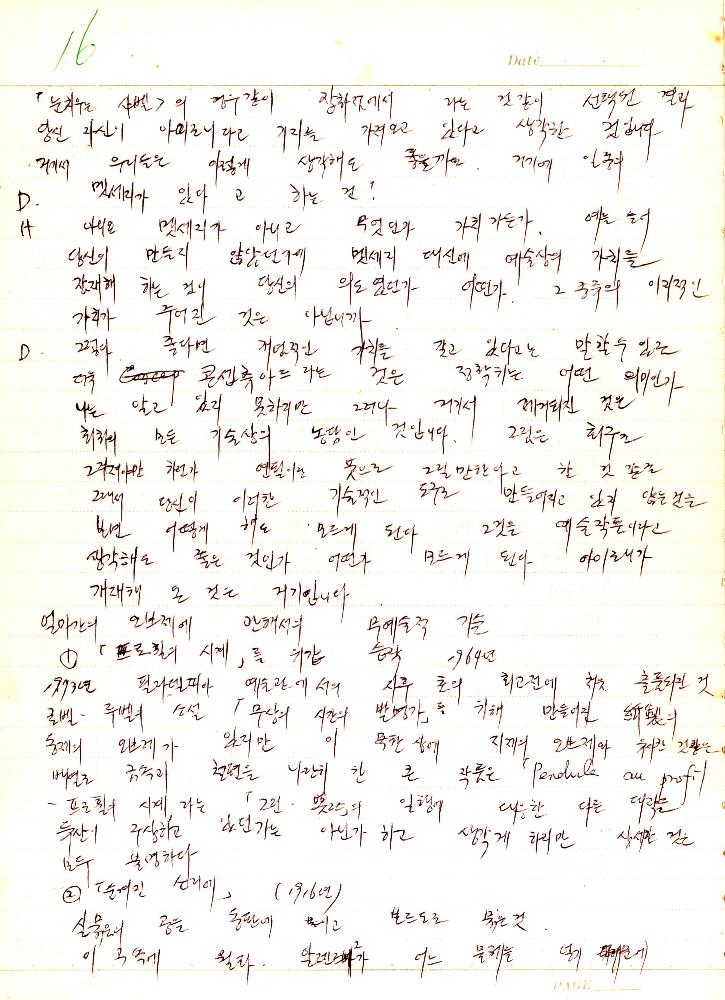 16
Date
「눈치우는 삽〉의 경우같이 잡화점에서 라는 것같이 선택된 결과
당신 자신이 아이로니라고 거리를 가져오고 있다고 생각한 것입니다
거기서 우리들은 이렇게 생각해도 좋을까요. 거기에 일종의
D. 멧세지가 있다 고 하는 건!
H 아니요 멧세지가 아니고 무엇인가 가치 가든가. 예를 들어
당신이 만들지 않았던가에 멧세지 대신에 예술상의 가치를
잠재해 하는 것이 당신의 의도였던가 어떤가. 그 종류의 이지적인
가치가 주어진 것은 아닙니까
D. 그렇다 좋다면 개념적인 가치를 갖고 있다고는 말할수 있는
더욱 콘셉츄아드 라는 것은 정확히는 어떤 의미인가
나는 알고 있지 못하지만 그러나 거기서 제거되진 것은
회화의 모든 기술상의 농담인 것입니다. 그림은 회구로
그려져야만 하던가 연필이던 붓으로 그릴만하다고 한 것 같은
그래서 당신이 이러한 기술적인 도구로 만들어지고 있지 않는것을
보면 어떻게 해도 모르게 된다 그것을 예술작품이라고
생각해도 좋은 것인가 어떤가 모르게 된다 아이로니가
개재해 온 것은 거기입니다
얼마간의 오브제에 관해서의 무예술적 기술
① 「프로필의 시계」를 위값 습작 1964년
1973년 필라델피아 예술관에서의 사후 초의 회고전에 처음 출품되진 것
로벨·루벨의 소설 「무상의 시간의 발명가」를 위해 만들어진 紙製의
동제의 오브제가 있지만 이 목판상에 지제의 오브제와
배연로 금속과 철편을 나란히 한 큰 작품은 「Pendule au profil
- 프로필의 시계 라는 「그린·복스」의 일행에 대응한 다른 대작을
뒤샹이 구상하고 있던가는 아닌가 하고 생각케 하지만 상세한 것은
모두 불명하다
② 「숨겨진 소리에」 (1916년)
실묶음의 공을 동판에 끼이고 보르도로 묶은것.
이 곡속에 월타. 알렌스버그가 어느 물체를 넣기 때문에
PAGE